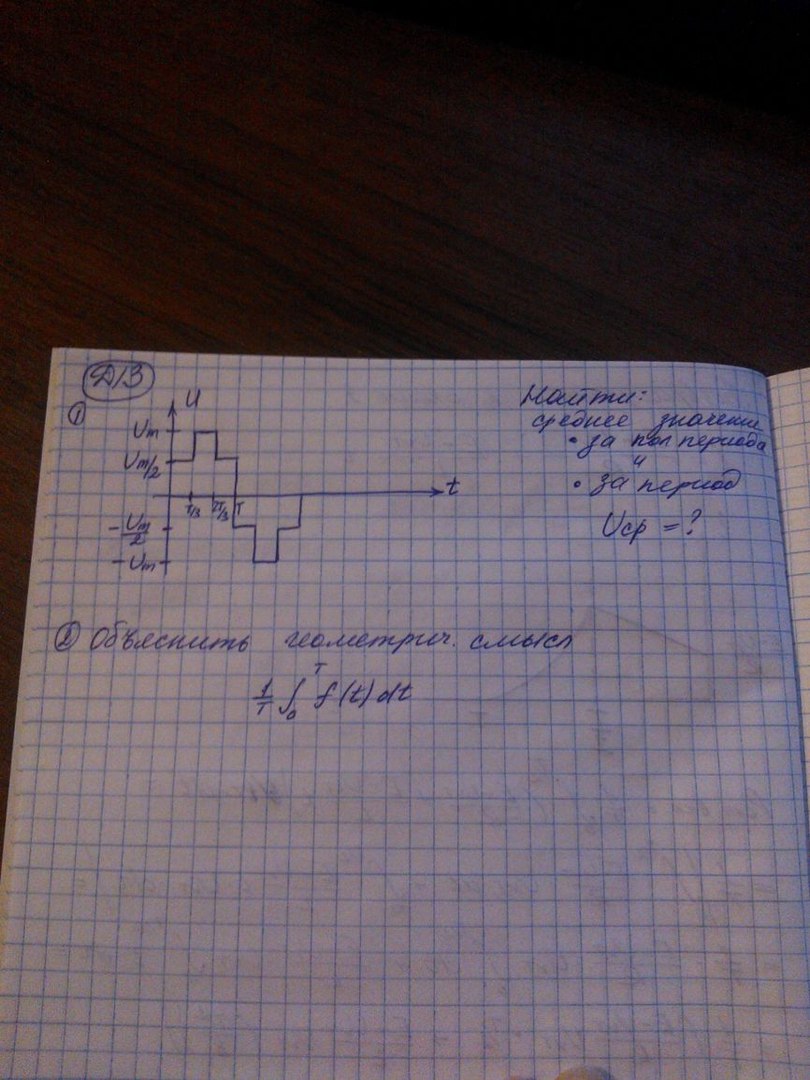 Д/З
① U
Um
Um/2
T/3 2T/3 T t
- Um/2
- Um
Найти:
среднее значение
• за пол периода
и
• за период
Uср = ?
② Объяснить геометрич. смысл
1/T ∫₀ᵀ f(t)dt